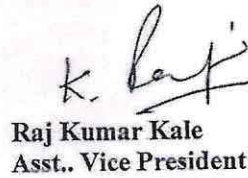 K. Raj
Raj Kumar Kale
Asst.. Vice President